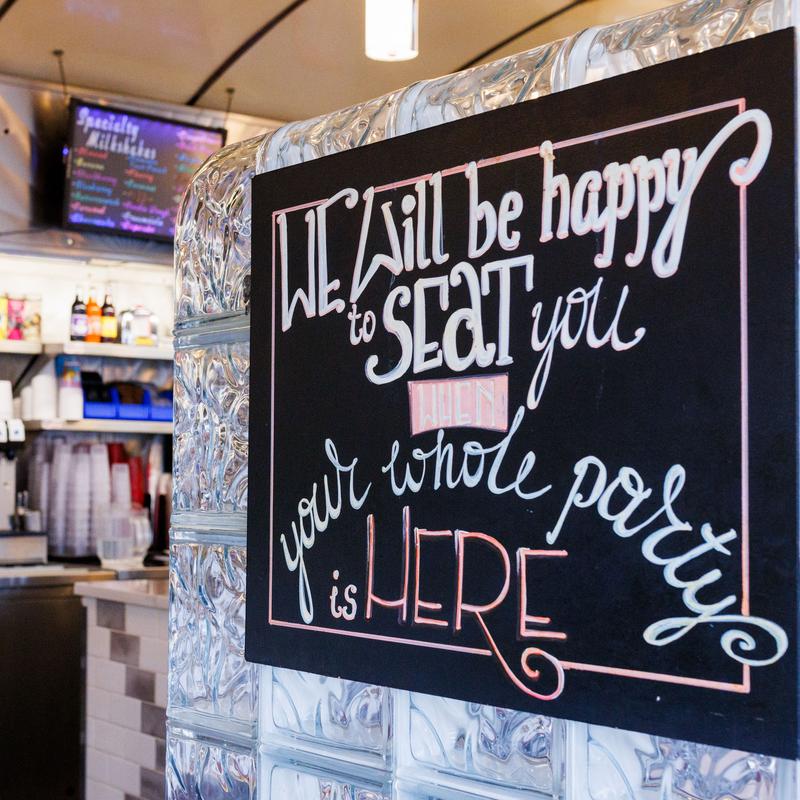 Specialty
Milkshakes
WE Will be happy
to SEaT you
WHEN
your whole party
is HERE